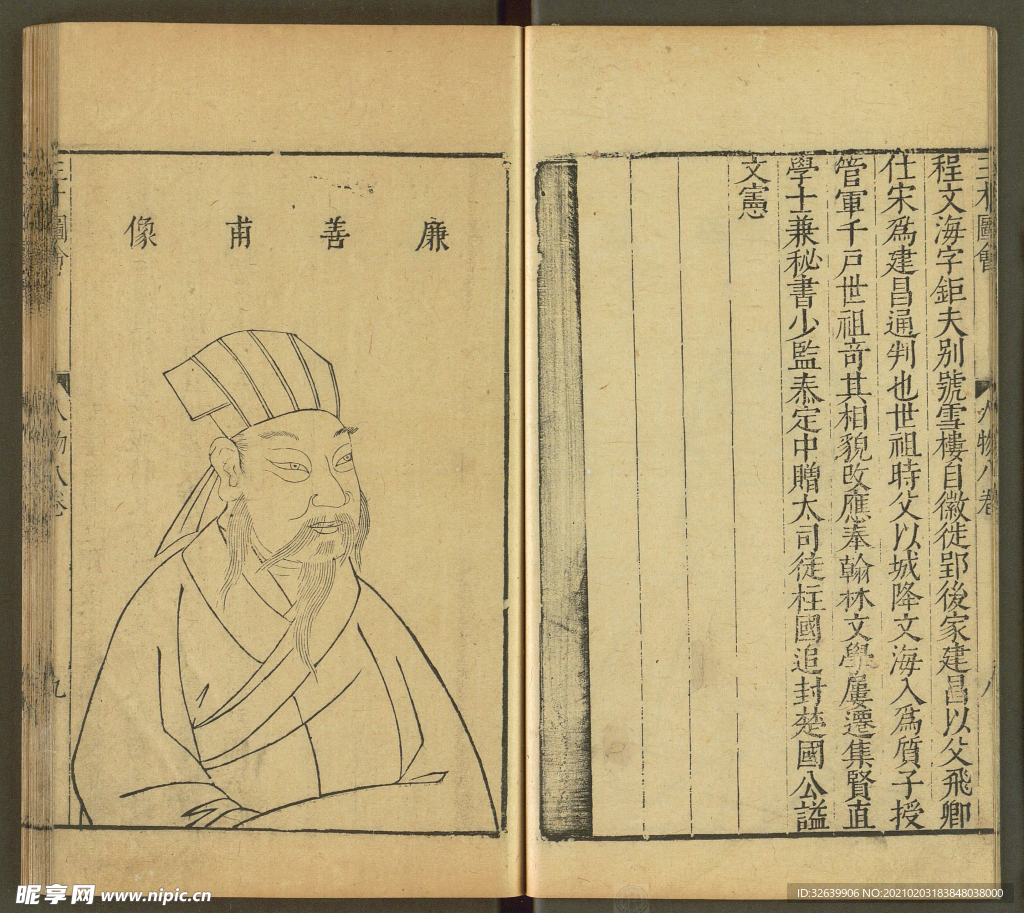 三才圖會
人物八卷
八
程文海字鉅夫別號雪樓自徽徙郢後家建昌以父飛卿
仕宋爲建昌通判也世祖時父以城降文海入爲質子授
管軍千戸世祖竒其相貌改應奉翰林文學屢遷集賢直
學士兼秘書少監泰定中贈太司徒柱國追封楚國公謚
文憲
廉善甫像
三才圖會
人物八卷
九
昵享网 www.nipic.cn
ID:32639906 NO:20210203183848038000